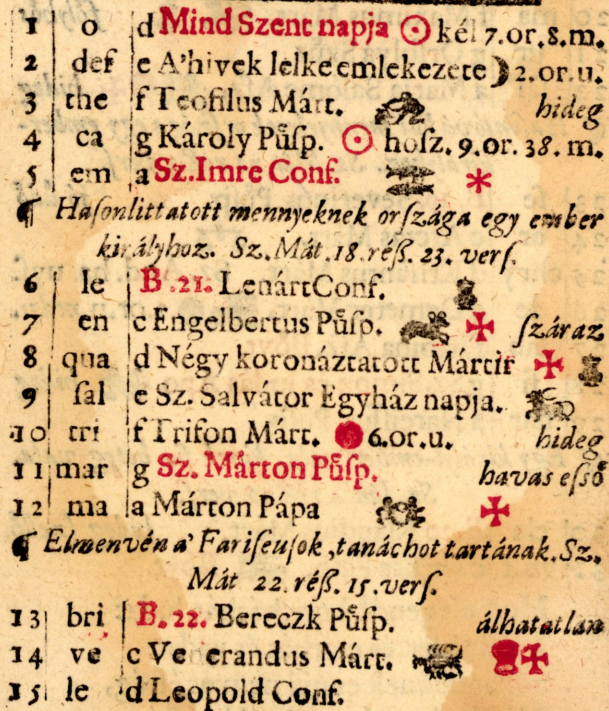 1 o d Mind Szent napja ☉ kél 7.or.8.m.
2 deſ e A'hivek lelke emlekezete ☽ 2.or.u.
3 the f Teofilus Márt. hideg
4 ca g Károly Pűſp. ☉ hoſz. 9.or. 38. m.
5 em a Sz.Imre Conf. *
¶ Haſonlittatott mennyeknek orſzága egy ember
királyhoz. Sz. Mát. 18. réß. 23. verſ.
6 le B.21. Lenárt Conf.
7 en c Engelbertus Pűſp. ✠ ſzáraz
8 qua d Négy koronáztatott Mártir ✠
9 ſal e Sz. Salvátor Egyház napja.
10 tri f Trifon Márt. ● 6.or.u. hideg
11 mar g Sz. Márton Pűſp. havas eſső
12 ma a Márton Pápa ✠
¶ Elmenvén a' Fariſeuſok, tanáchot tartának. Sz.
Mát 22. réß. 15. verſ.
13 bri B. 22. Bereczk Pűſp. álhatatlan
14 ve c Ve erandus Márt. ✠
15 le d Leopold Conf.